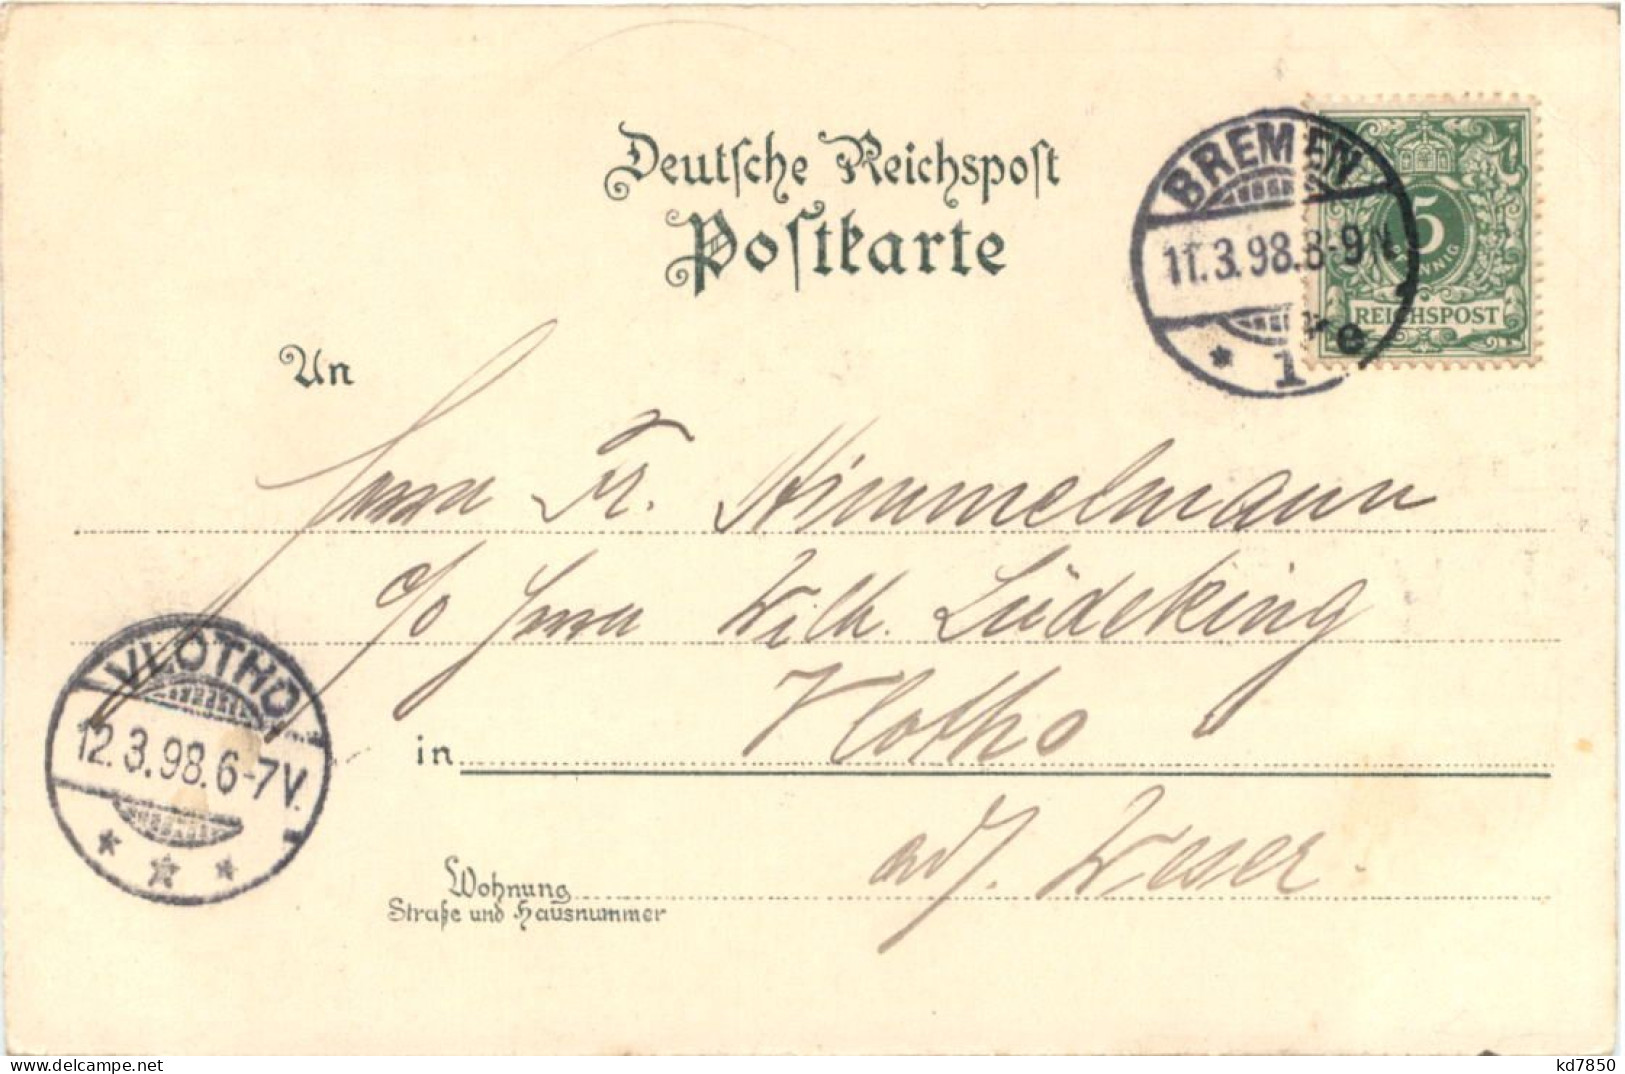 Deutsche Reichspost
Postkarte
BREMEN
11.3.98.8-9N
* 1 e
5
PFENNIG
REICHSPOST
An
Herrn Fr. Himmelmann
c/o Herrn Wilh. Lüdeking
in Vlotho
a/d. Weser.
VLOTHO
12.3.98.6-7V.
* * *
Wohnung
Straße und Hausnummer
delcampe.net
kd7850